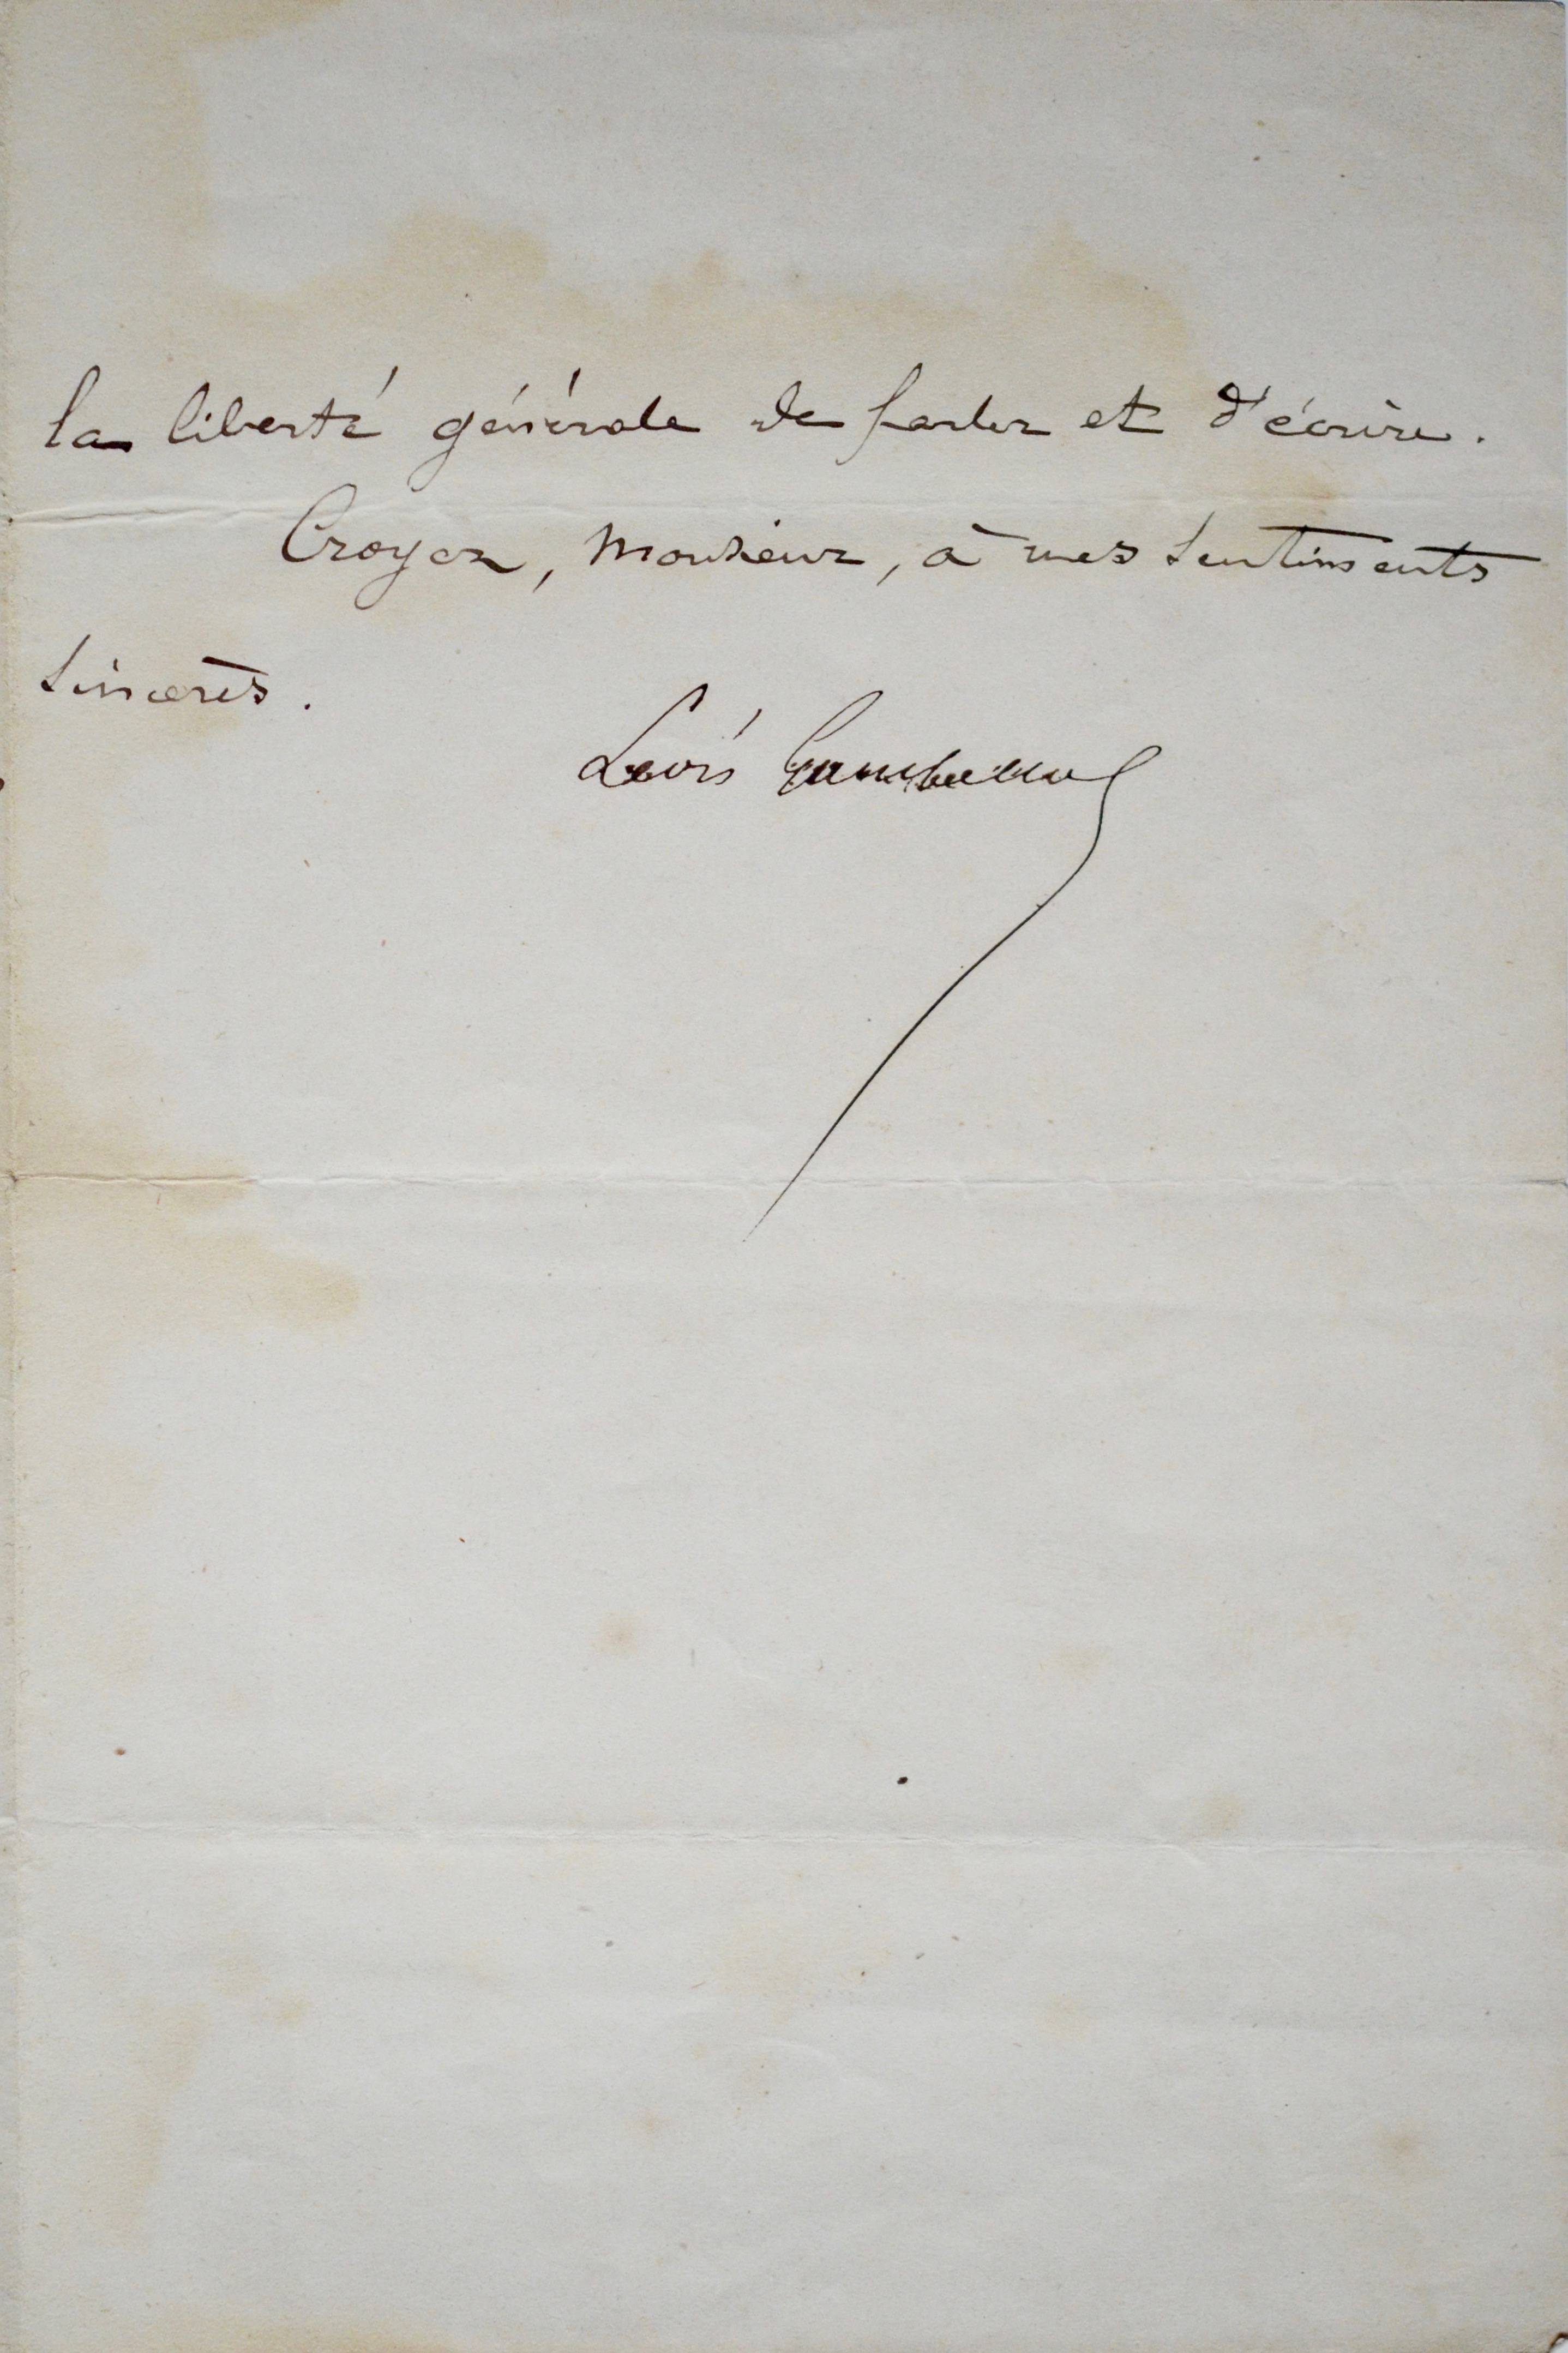 la liberté générale de parler et d'écrire.
Croyez, Monsieur, à mes sentiments
sincères.
Louis